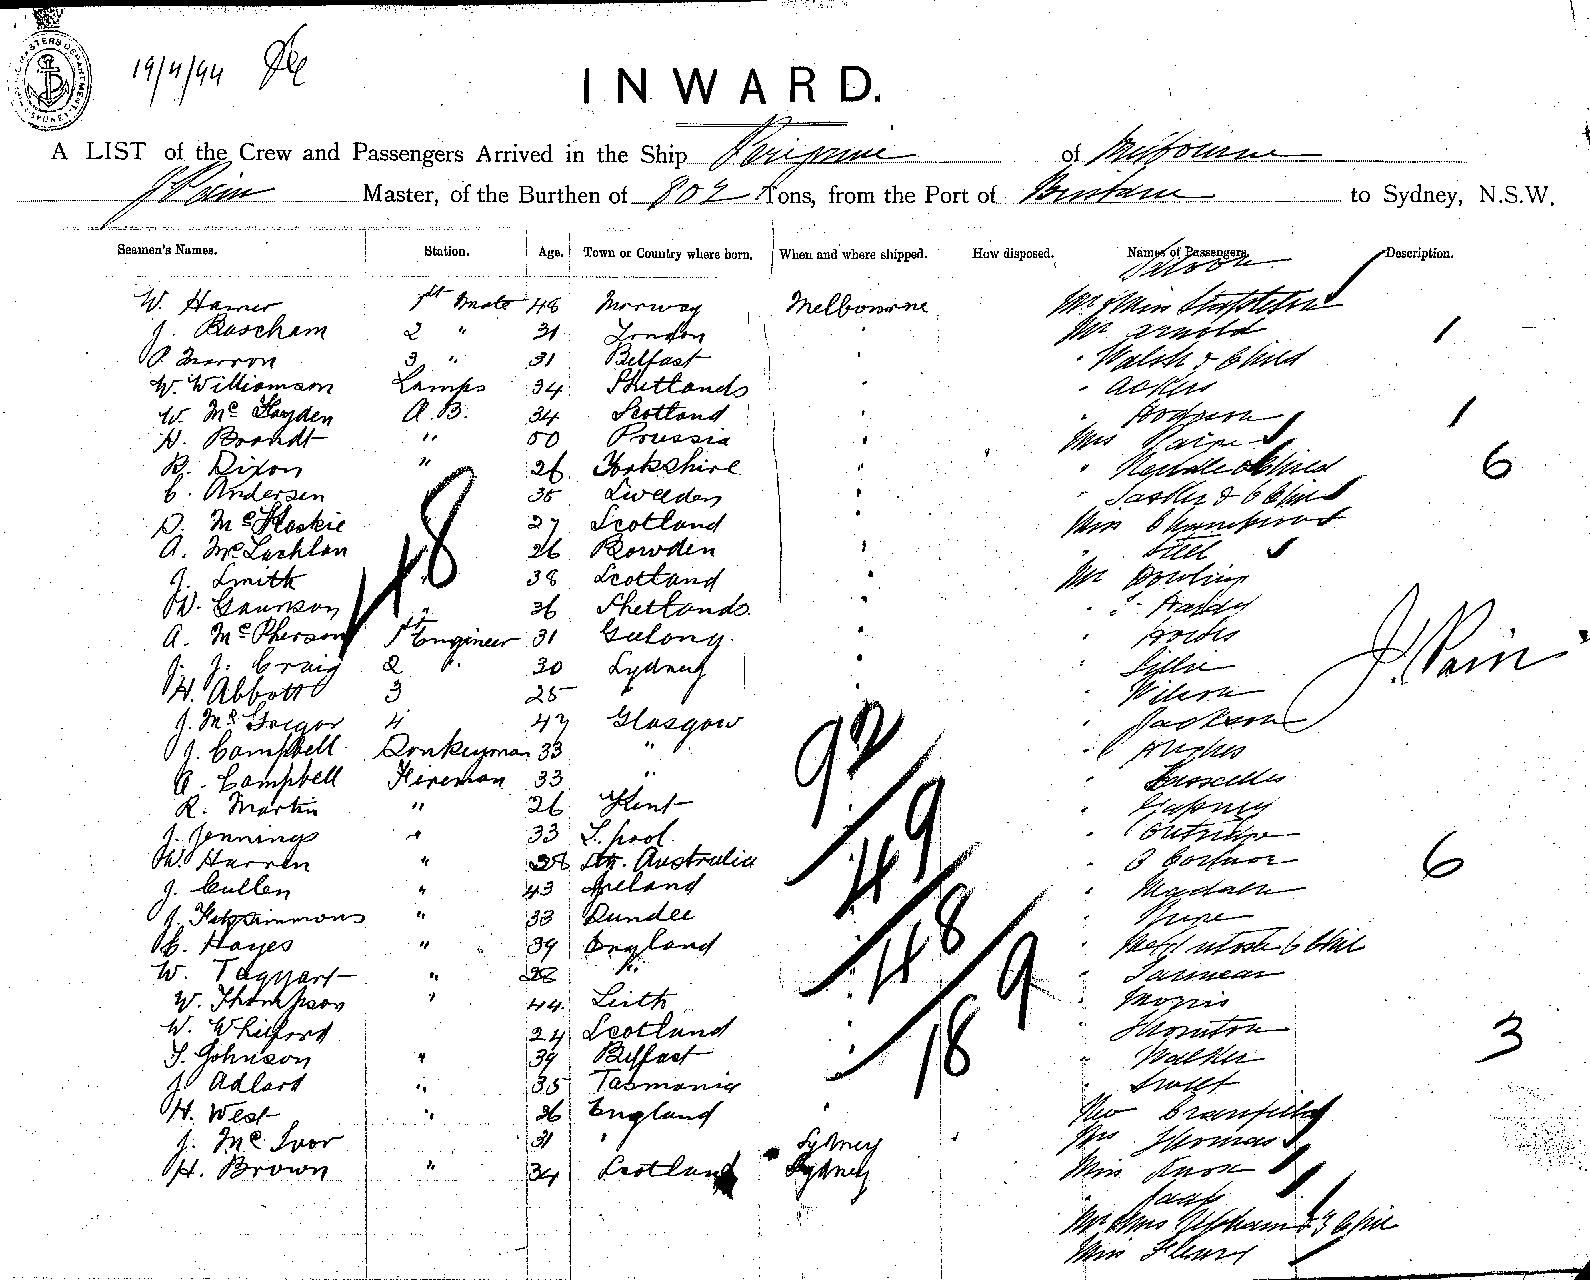 19/4/94
INWARD.
A LIST of the Crew and Passengers Arrived in the Ship Peregrine of Melbourne
J Pain Master, of the Burthen of 802 Tons, from the Port of Brisbane to Sydney, N.S.W.
Seamen's Names. Station. Age. Town or Country where born. When and where shipped. How disposed. Names of Passengers. Description.
Saloon
W. Hamer 1st Mate 48 Norway Melbourne Mr & Miss Stapleton
J. Bascham 2 " 31 London Mr Arnold 1
P. Marron 3 " 31 Belfast " Walsh & Child
W. Williamson Lamps 34 Shetlands "
W. Mc Hayden A.B. 34 Scotland " Hodgson 1
H. Brandt " 50 Prussia Mrs
R. Dixon " 26 Yorkshire " 6
C. Andersen 35 Sweeden " & Child
D. McHaskie 27 Scotland Miss
A. McLachlan 26 Bowden " Steel
J. Smith 38 Scotland Mr Dowling
W. Gaunson 36 Shetlands "
48
A. McPherson 1st Engineer 31 Geelong "
J. J. Craig 2 " 30 Sydney "
J. Pain
H. Abbott 3 25 " Wilson
J. McGregor 4 47 Glasgow " Jackson
J. Campbell Donkeyman 33 " " Hughes
A. Campbell Fireman 33 " "
92
R. Martin " 26 Kent " Gaffney
J. Jennings " 33 L.pool " Outridge
W. Harren " 28 Sth. Australia " O Connor 6
49
J. Cullen " 43 Ireland " Madden
J. Fitzsimmons " 33 Dundee "
C. Hayes " 39 England " McIntosh & Chil
48
W. Taggart " 28 " "
W. Thompson " 44 Leith " Morris
9
W. Whifford 24 Scotland " Thornton 3
S. Johnson " 39 Belfast " Walker
18
J. Adlard " 35 Tasmania " Swift
H. West " 26 England
J. Mc Ivor 31 " Sydney Mrs Thomas
H. Brown " 34 Scotland Sydney Miss Knox
"
Mr & Mrs & 3 Chil
Miss Fleury